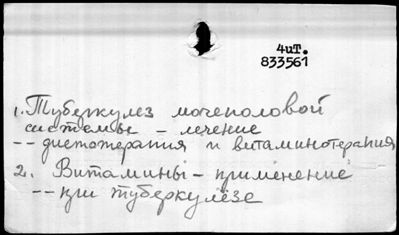 4иТ.
833561
1. Туберкулез мочеполовой
системы - лечение
-- диетотерапия и витаминотерапия
2. Витамины - применение
-- при туберкулёзе